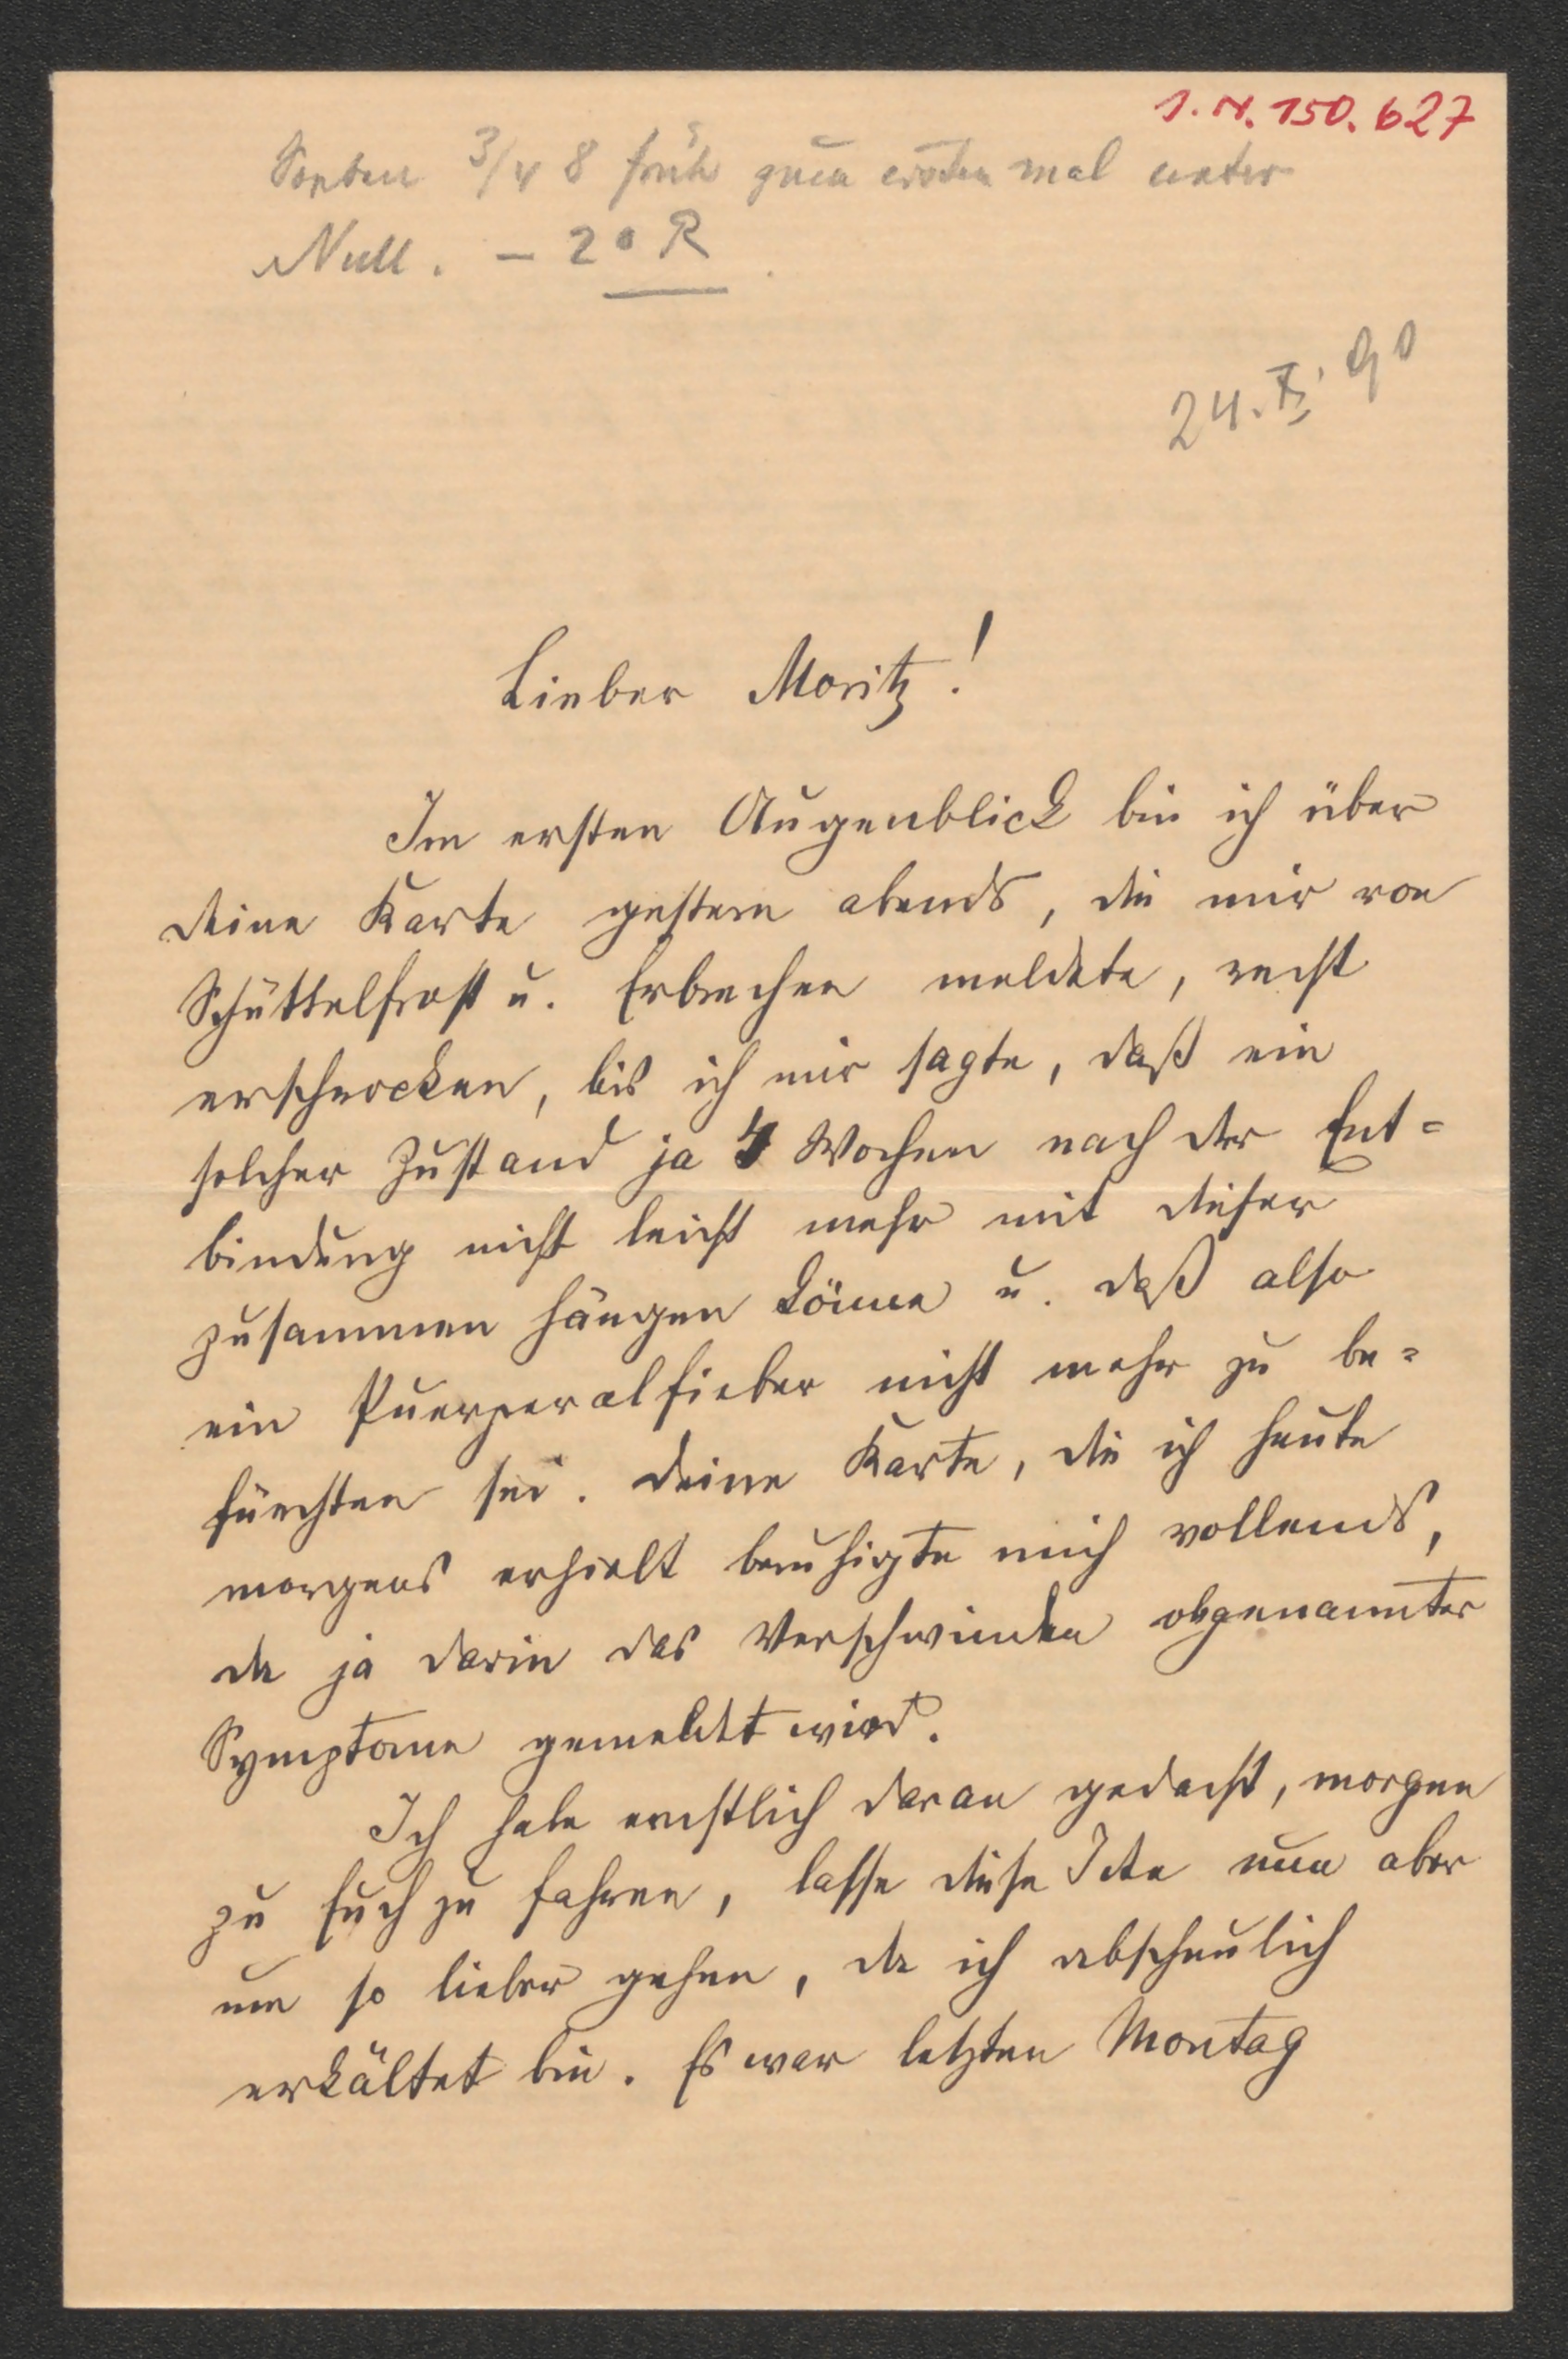 I. N. 150.627
Soeben 3/4 8 früh zum ersten mal unter
Null. – 2° R
24. X. 90
Lieber Moritz!
Im ersten Augenblick bin ich über
deine Karte gestern abends, die mir von
Schüttelfrost u. Erbrechen meldete, recht
erschrocken, bis ich mir sagte, daß ein
solcher Zustand ja 4 Wochen nach der Ent=
bindung nicht leicht mehr mit dieser
zusammen hängen könne u. daß also
ein Puerperalfieber nicht mehr zu be=
fürchten sei. Deine Karte, die ich heute
morgens erhielt beruhigte mich vollends,
da ja darin das Verschwinden obgenannter
Symptome gemeldet wird.
Ich habe ernstlich daran gedacht, morgen
zu Euch zu fahren, lasse diese Idee nun aber
um so lieber gehen, da ich abscheulich
erkältet bin. Es war letzten Montag